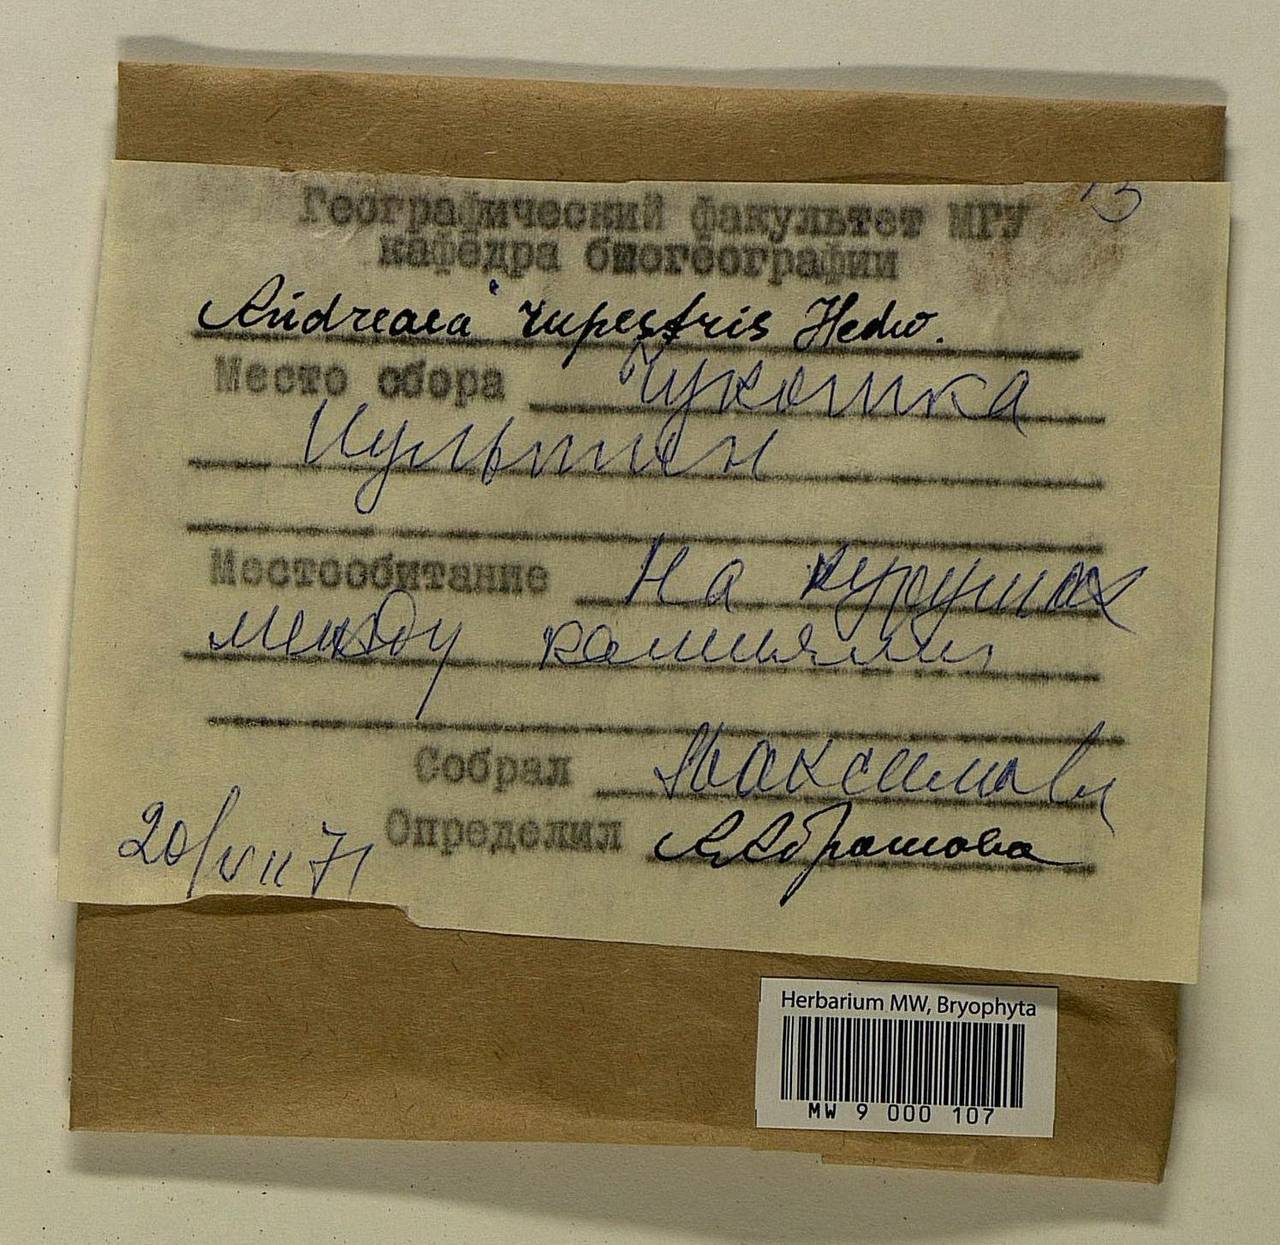 13
Географический факультет МГУ
кафедра биогеографии
Andreaea rupestris Hedw.
Место сбора Чукотка
Иультин
Местообитание На курумах
между камнями
Собрал Максимова
Определил А.Абрамова
20/VII 71
Herbarium MW, Bryophyta
MW 9 000 107